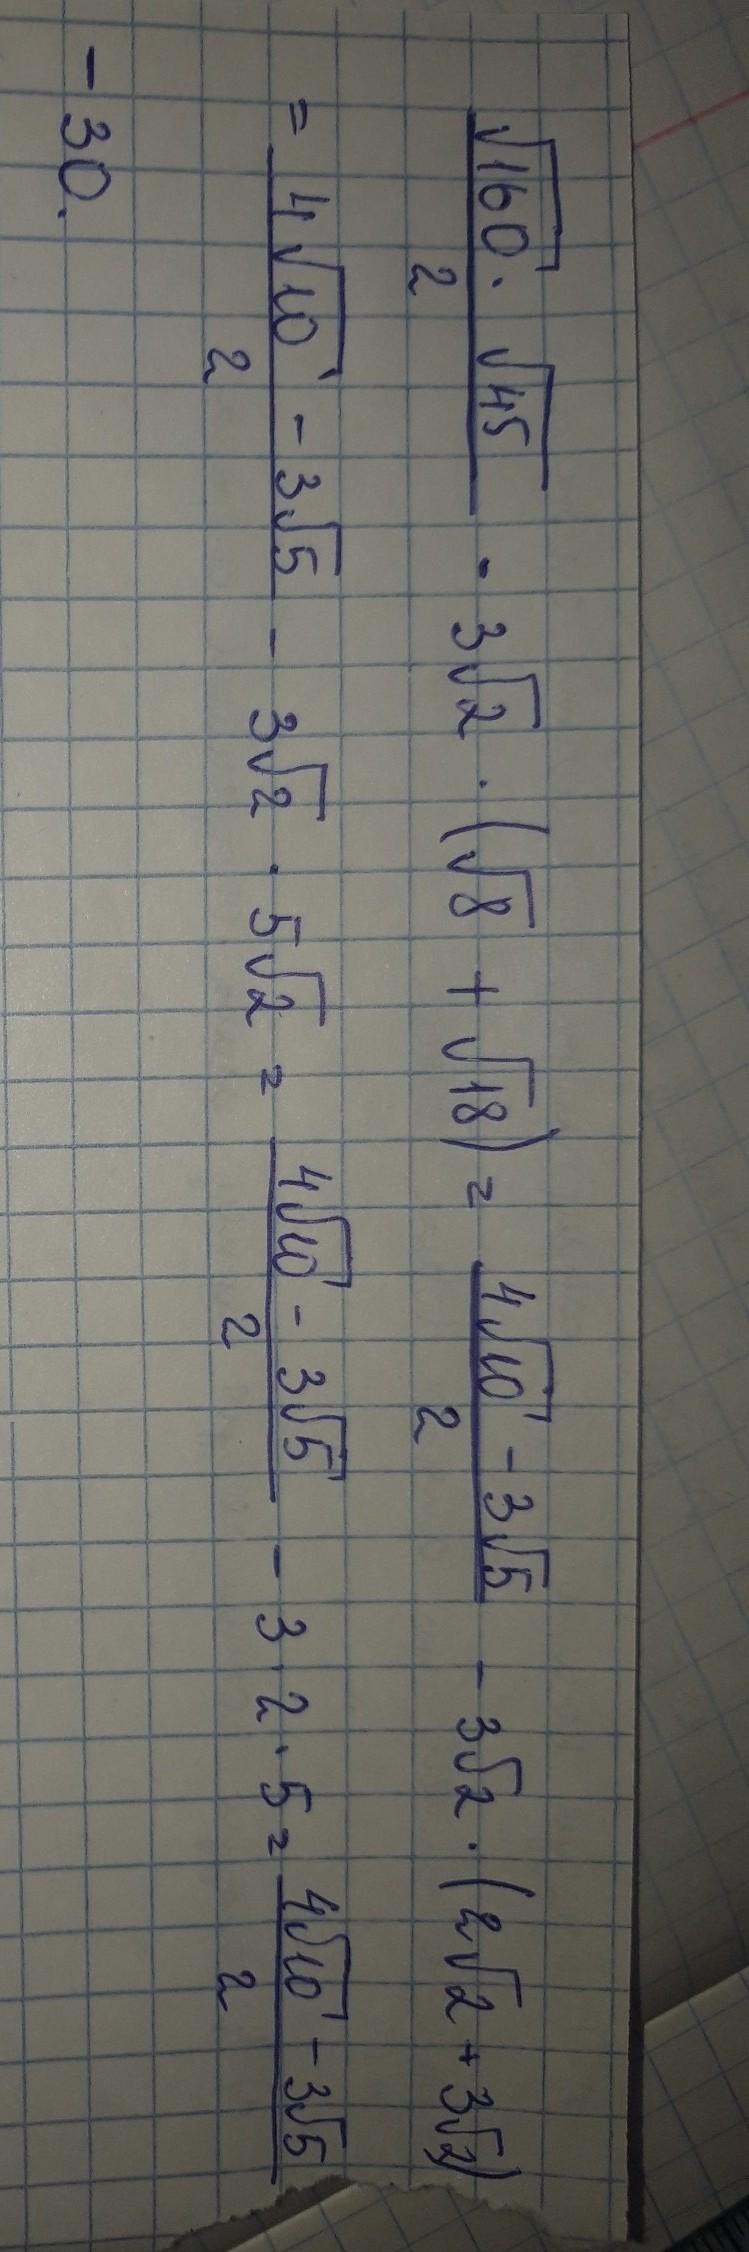 √160 · √45 / 2 - 3√2 · (√8 + √18) = 4√10 - 3√5 / 2 - 3√2 · (2√2 + 3√2)
= 4√10 - 3√5 / 2 - 3√2 · 5√2 = 4√10 - 3√5 / 2 - 3 · 2 · 5 = 4√10 - 3√5 / 2
- 30.